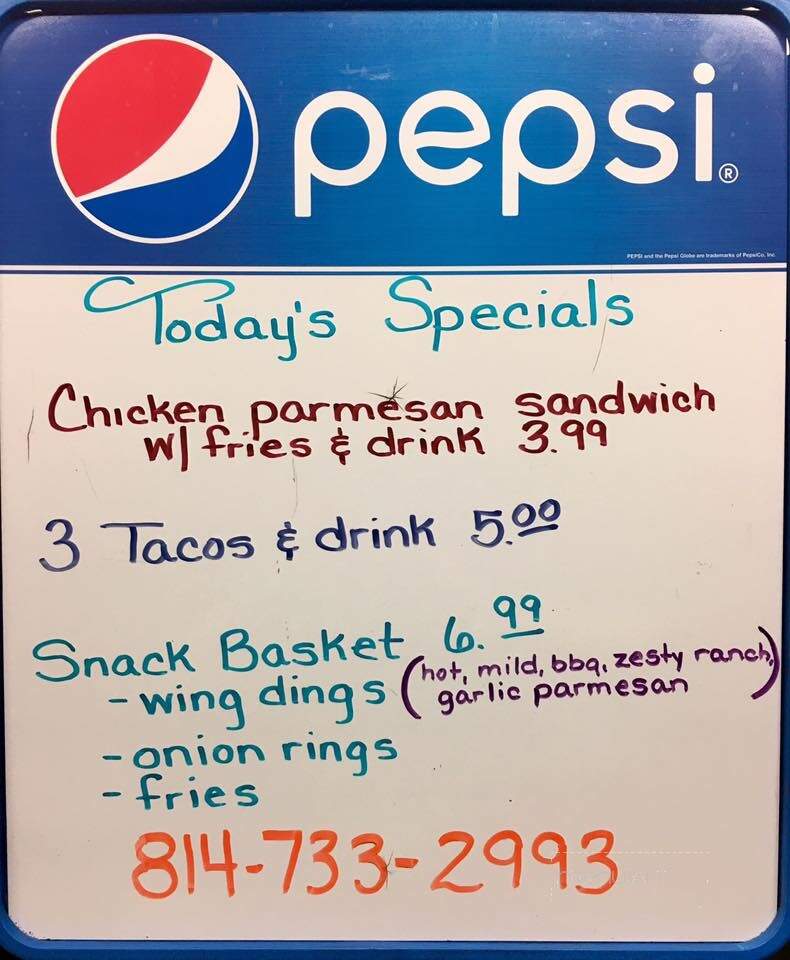 pepsi®
PEPSI and the Pepsi Globe are trademarks of PepsiCo, Inc.
Today's Specials
Chicken parmesan sandwich
w/ fries & drink 3.99
3 Tacos & drink 5.00
Snack Basket 6.99
- wing dings (hot, mild, bbq, zesty ranch,
garlic parmesan)
- onion rings
- fries
814-733-2993